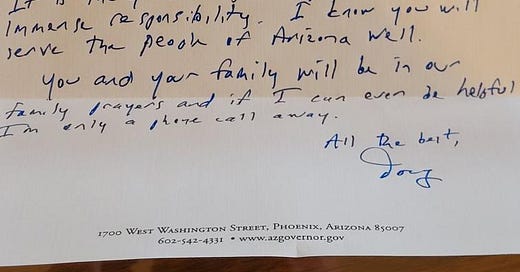 It is
immense responsibility. I know you will
serve the people of Arizona well.
You and your family will be in our
family prayers and if I can ever be helpful
I'm only a phone call away.
All the best,
Doug
1700 West Washington Street, Phoenix, Arizona 85007
602-542-4331 • www.azgovernor.gov